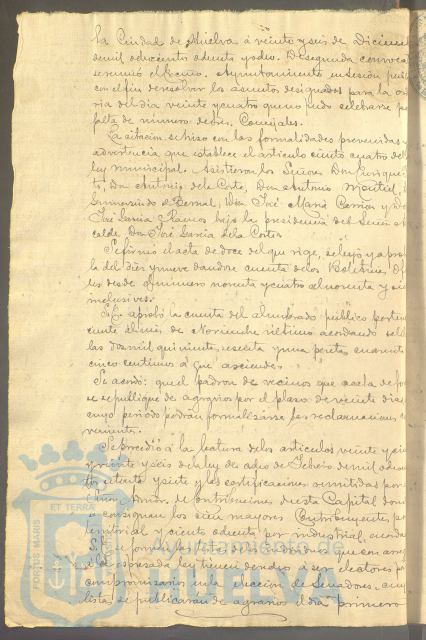 la Ciudad de Huelva á veinte y seis de Diciem
de mil ochocientos ochenta y ocho. De segunda convoca
se reunió el Excmo. Ayuntamiento en Sesión púb
con el fin de resolver los asuntos designados para la or
ria del dia veinte y cuatro que no pudo celebrarse p
falta de número de Sres. Concejales.
La citacion se hizo con las formalidades prevenidas y
advertencia que establece el articulo ciento cuatro de la
ley municipal. Asistieron los Señores Don Enrique
Don Antonio de la Corte, Don Antonio Montiel,
Gumersindo Bernal, Don José María Carrion y D
José García Ramos bajo la presidencia del Señor Al
calde Don José García de la Corte.
Se firmó el acta de doce del que rige, se leyó y apro
la del diez y nueve dandose cuenta de los Boletines Of
les desde el numero noventa y cuatro al noventa y
inclusives.
Se aprobó la cuenta del alumbrado público perten
ciente al mes de Noviembre último acordando
las dos mil quinientas sesenta y una pesetas cuarenta
cinco centimos á que asciende.
Se acordó: que el padron de vecinos que acaba de fo
se publique de agravios por el plazo de veinte dias
cuyo periodo podrán formalizarse las reclamaciones con
venientes.
Se procedió á la lectura de los articulos veinte y
y veinte y seis de la ley de ocho de Febrero de mil ocho
setenta y siete y las certificaciones remitidas por
Admon. de Contribuciones de esta Capital don
se consignan los cien mayores Contribuyentes p
territorial y ciento ochenta por industrial,
se forme la lista de los individuos que con arreg
á la expresada ley tienen derecho á ser electores pa
compromisarios en la eleccion de Senadores, cuy
lista se publicarán de agravios el dia primero
PORTUS MARIS
ET TERRÆ
Ayuntamiento de
HUELVA